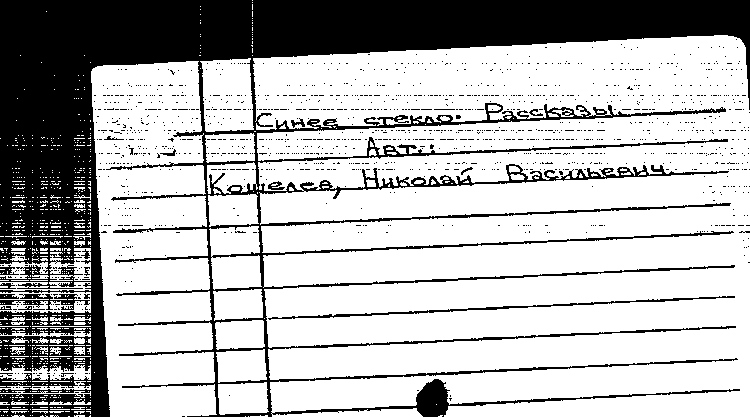 Синее стекло. Рассказы.
Авт.:
Кошелев, Николай Васильевич.